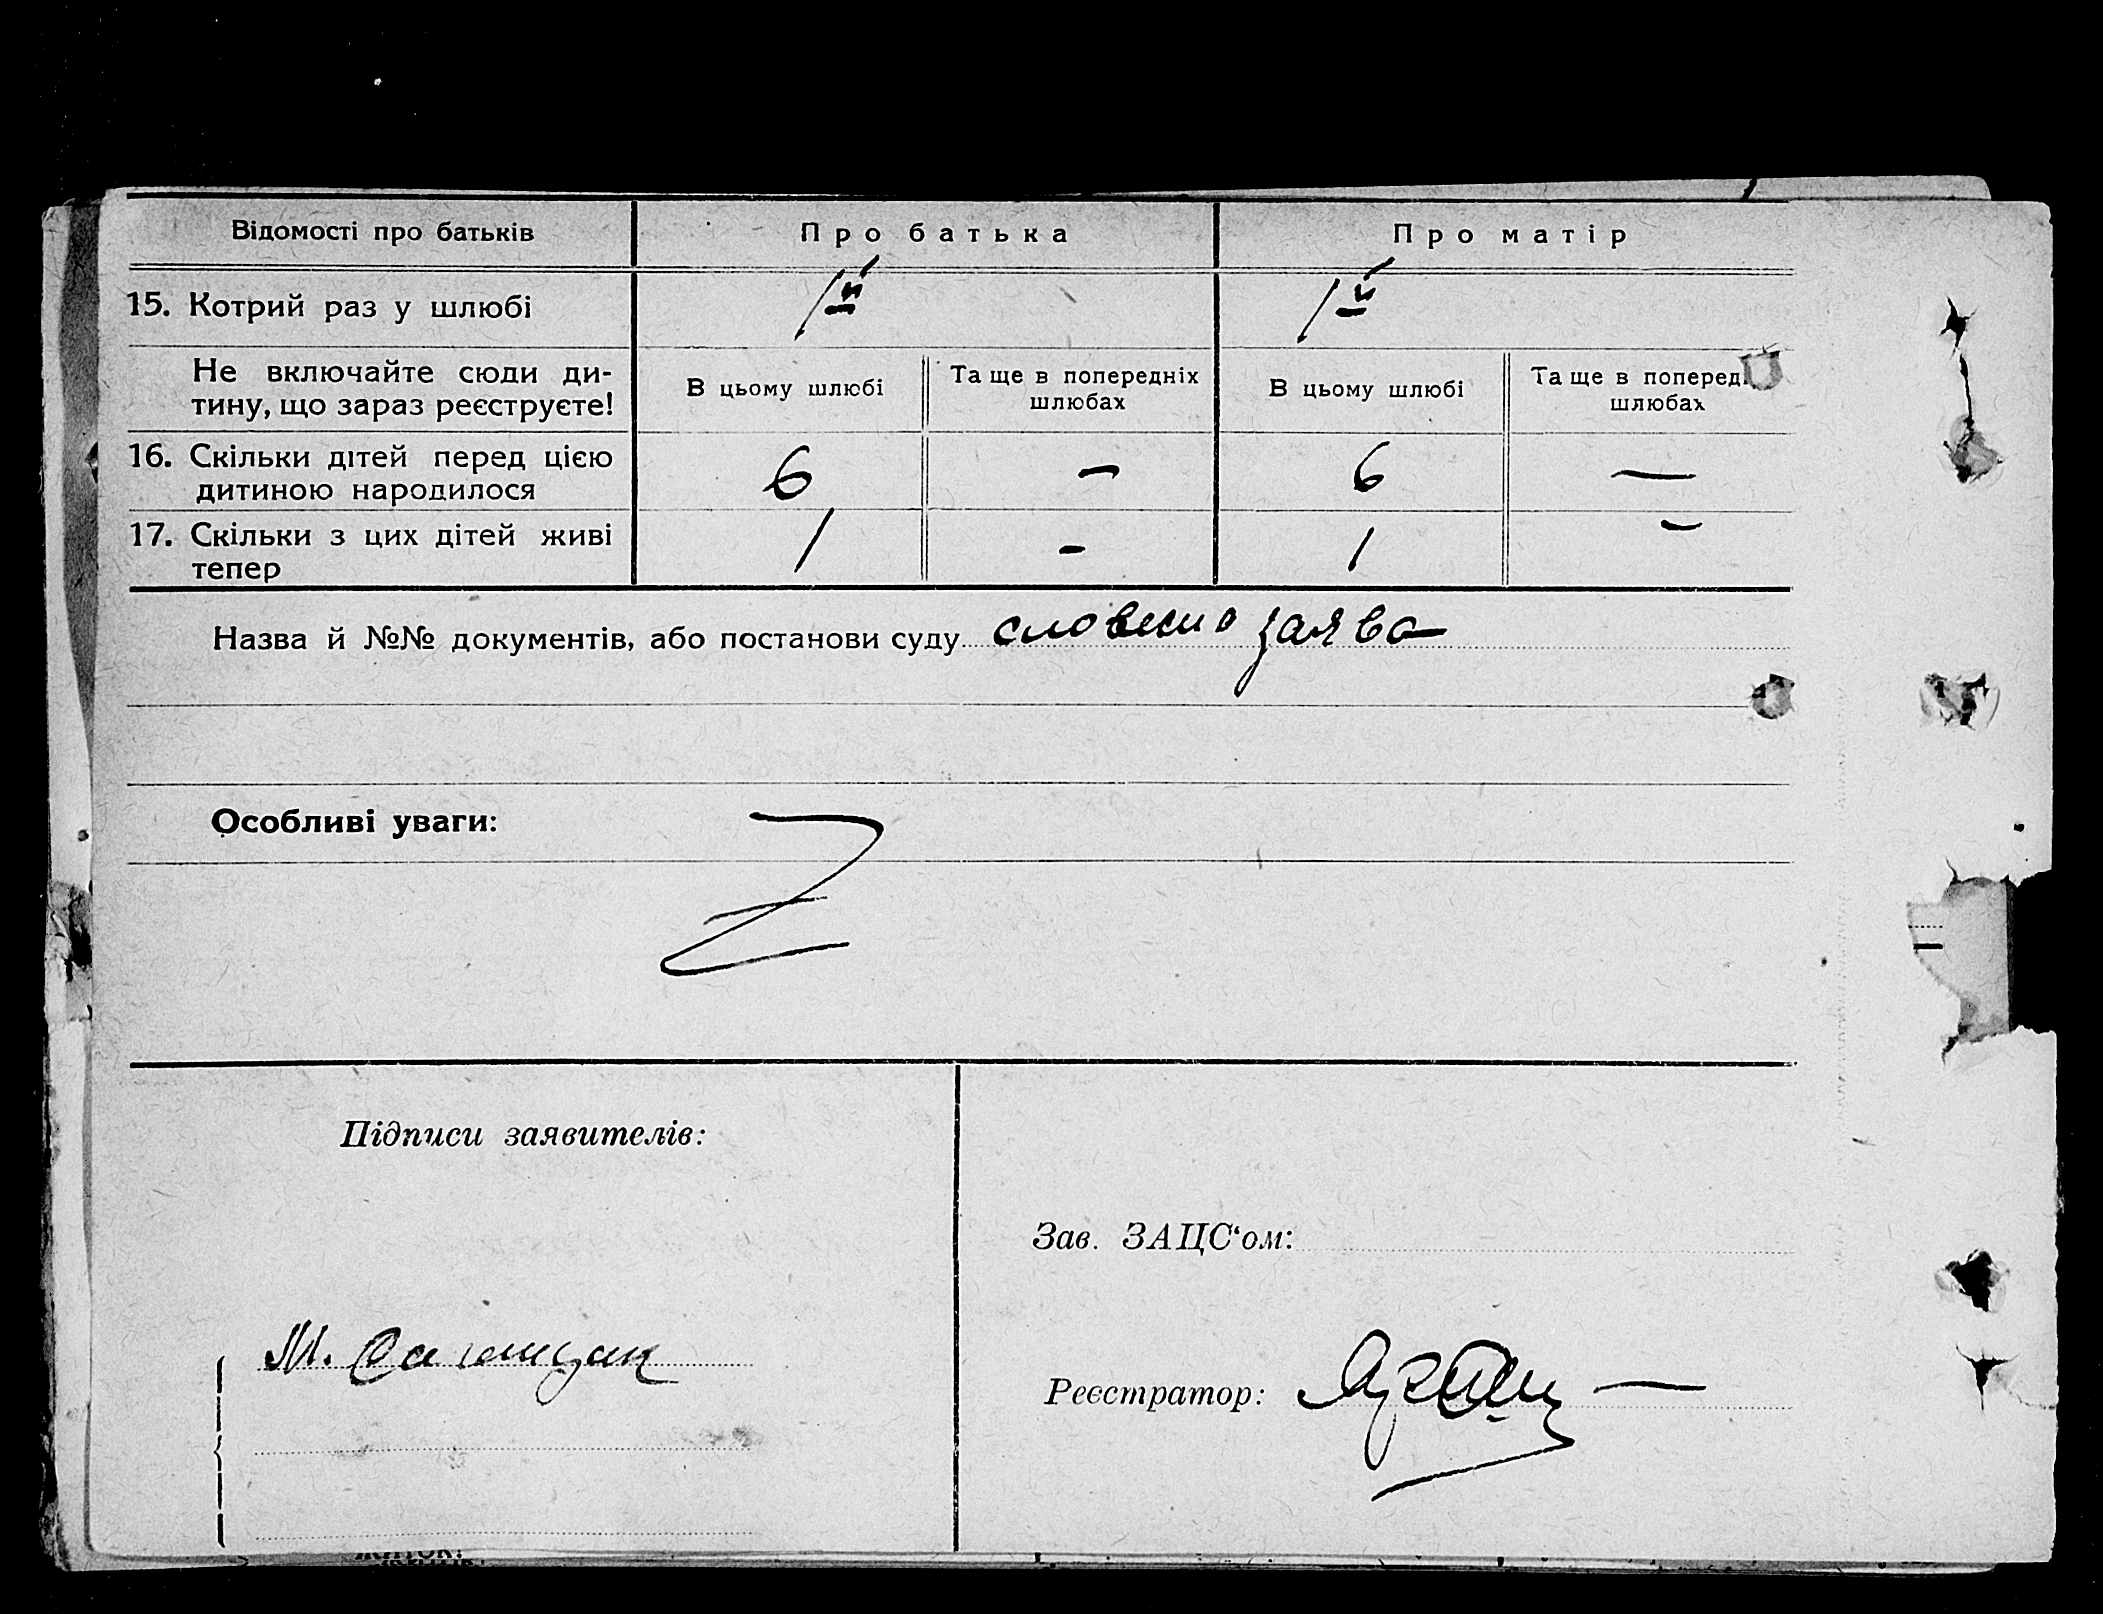 Відомості про батьків Про батька Про матір
15. Котрий раз у шлюбі 1й 1й
Не включайте сюди ди- В цьому шлюбі Та ще в попередніх В цьому шлюбі Та ще в поперед
тину, що зараз реєструєте! шлюбах шлюбах
16. Скільки дітей перед цією 6 — 6 —
дитиною народилося
17. Скільки з цих дітей живі 1 - 1 -
тепер
Назва й №№ документів, або постанови суду словесно заява
Особливі уваги: Z
Підписи заявителів:
Зав. ЗАЦС‘ом:
М.
Реєстратор: